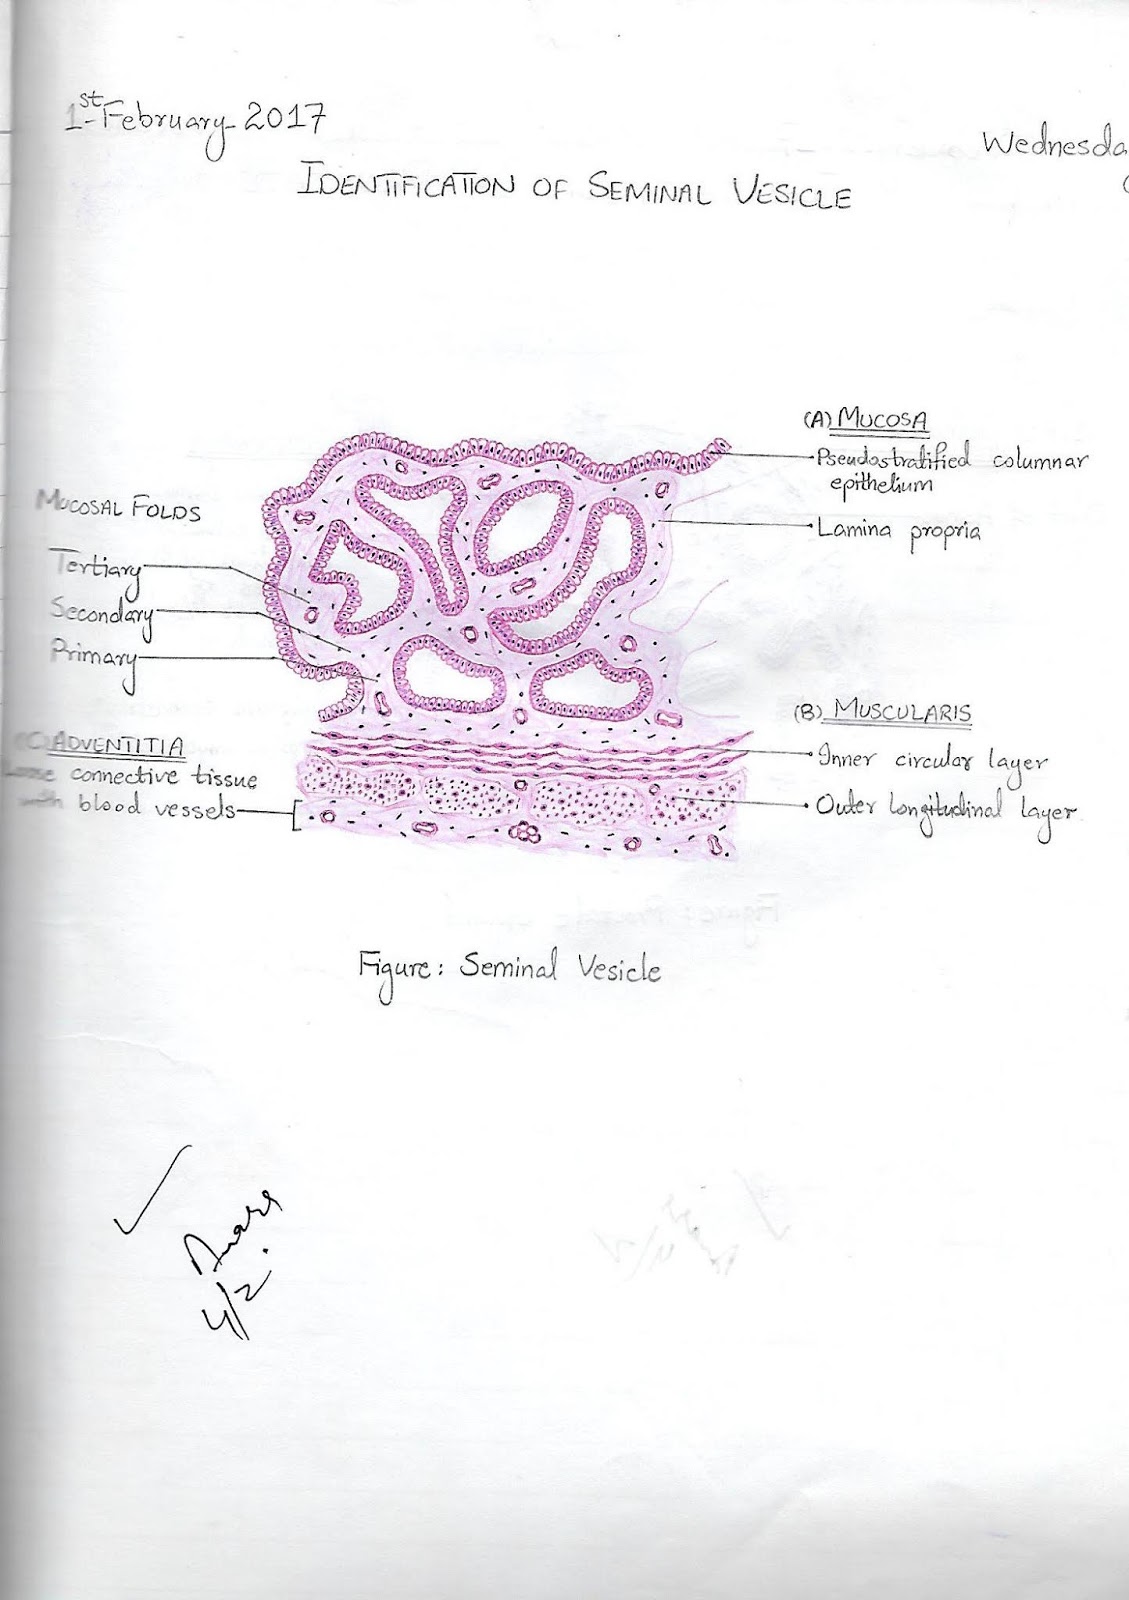 1st February 2017
Wednesda
IDENTIFICATION OF SEMINAL VESICLE
(A) MUCOSA
Pseudostratified columnar
epithelium
Lamina propria
MUCOSAL FOLDS
Tertiary
Secondary
Primary
(B) MUSCULARIS
Inner circular layer
Outer longitudinal layer
(C) ADVENTITIA
Loose connective tissue
with blood vessels
Figure: Seminal Vesicle
4/2.